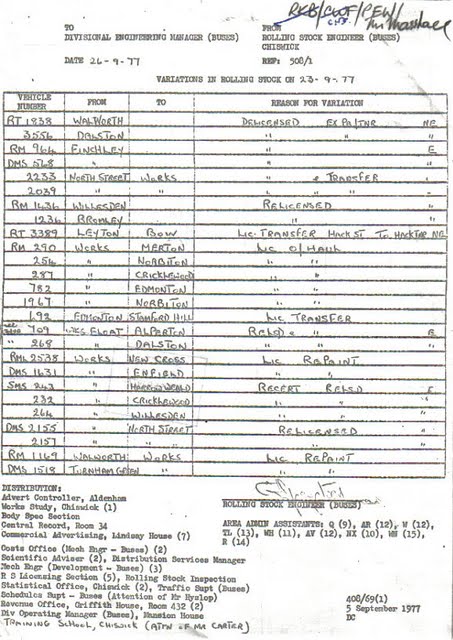 RKB/CWF/PEW/
Mr Marshall
TO FROM
DIVISIONAL ENGINEERING MANAGER (BUSES) ROLLING STOCK ENGINEER (BUSES)
CHISWICK
DATE 26-9-77 REF: 508/1
VARIATIONS IN ROLLING STOCK ON 23-9-77
VEHICLE NUMBER FROM TO REASON FOR VARIATION
RT 1838 WALWORTH DELICENSED EX PA/TNR NE
3556 DALSTON " "
RM 964 FINCHLEY " E
DMS 568 " " "
2233 NORTH STREET WORKS " & TRANSFER "
2039 " " " " "
RM 1436 WILLESDEN RELICENSED "
1236 BROMLEY " "
RT 3389 LEYTON BOW LIC. TRANSFER HACK ST TO HACK TNR NE
RM 290 WORKS MERTON LIC O/HAUL
254 " NORBITON " "
287 " CRICKLEWOOD " "
782 " EDMONTON " "
1967 " NORBITON " "
692 EDMONTON STAMFORD HILL LIC TRANSFER
709 WKS FLOAT ALPERTON RELCD & " E
" 268 " DALSTON " " "
RML 2538 WORKS NEW CROSS LIC REPAINT
DMS 1631 " ENFIELD " "
SMS 243 " HARROW WEALD RECERT RELCD E
232 " CRICKLEWOOD " " "
264 " WILLESDEN " " "
DMS 2155 " NORTH STREET RELICENSED "
2157 " " " "
RM 1169 WALWORTH WORKS LIC REPAINT
DMS 1518 TURNHAM GREEN " " "
DISTRIBUTION:
Advert Controller, Aldenham
Works Study, Chiswick (1)
Body Spec Section
Central Record, Room 34
Commercial Advertising, Lindsay House (7)
Costs Office (Mech Engr - Buses) (2)
Scientific Adviser (2), Distribution Services Manager
Mech Engr (Development - Buses) (3)
R S Licensing Section (5), Rolling Stock Inspection
Statistical Office, Chiswick (2), Traffic Supt (Buses)
Schedules Supt - Buses (Attention of Mr Hyslop)
Revenue Office, Griffith House, Room 432 (2)
Div Operating Manager (Buses), Mansion House
TRAINING SCHOOL, CHISWICK (ATTN OF MR CARTER)
ROLLING STOCK ENGINEER (BUSES)
AREA ADMIN ASSISTANTS: Q (9), AR (12), W (12),
TL (13), WH (11), AV (12), NX (10), WN (15),
R (14)
408/69(1)
5 September 1977
DC